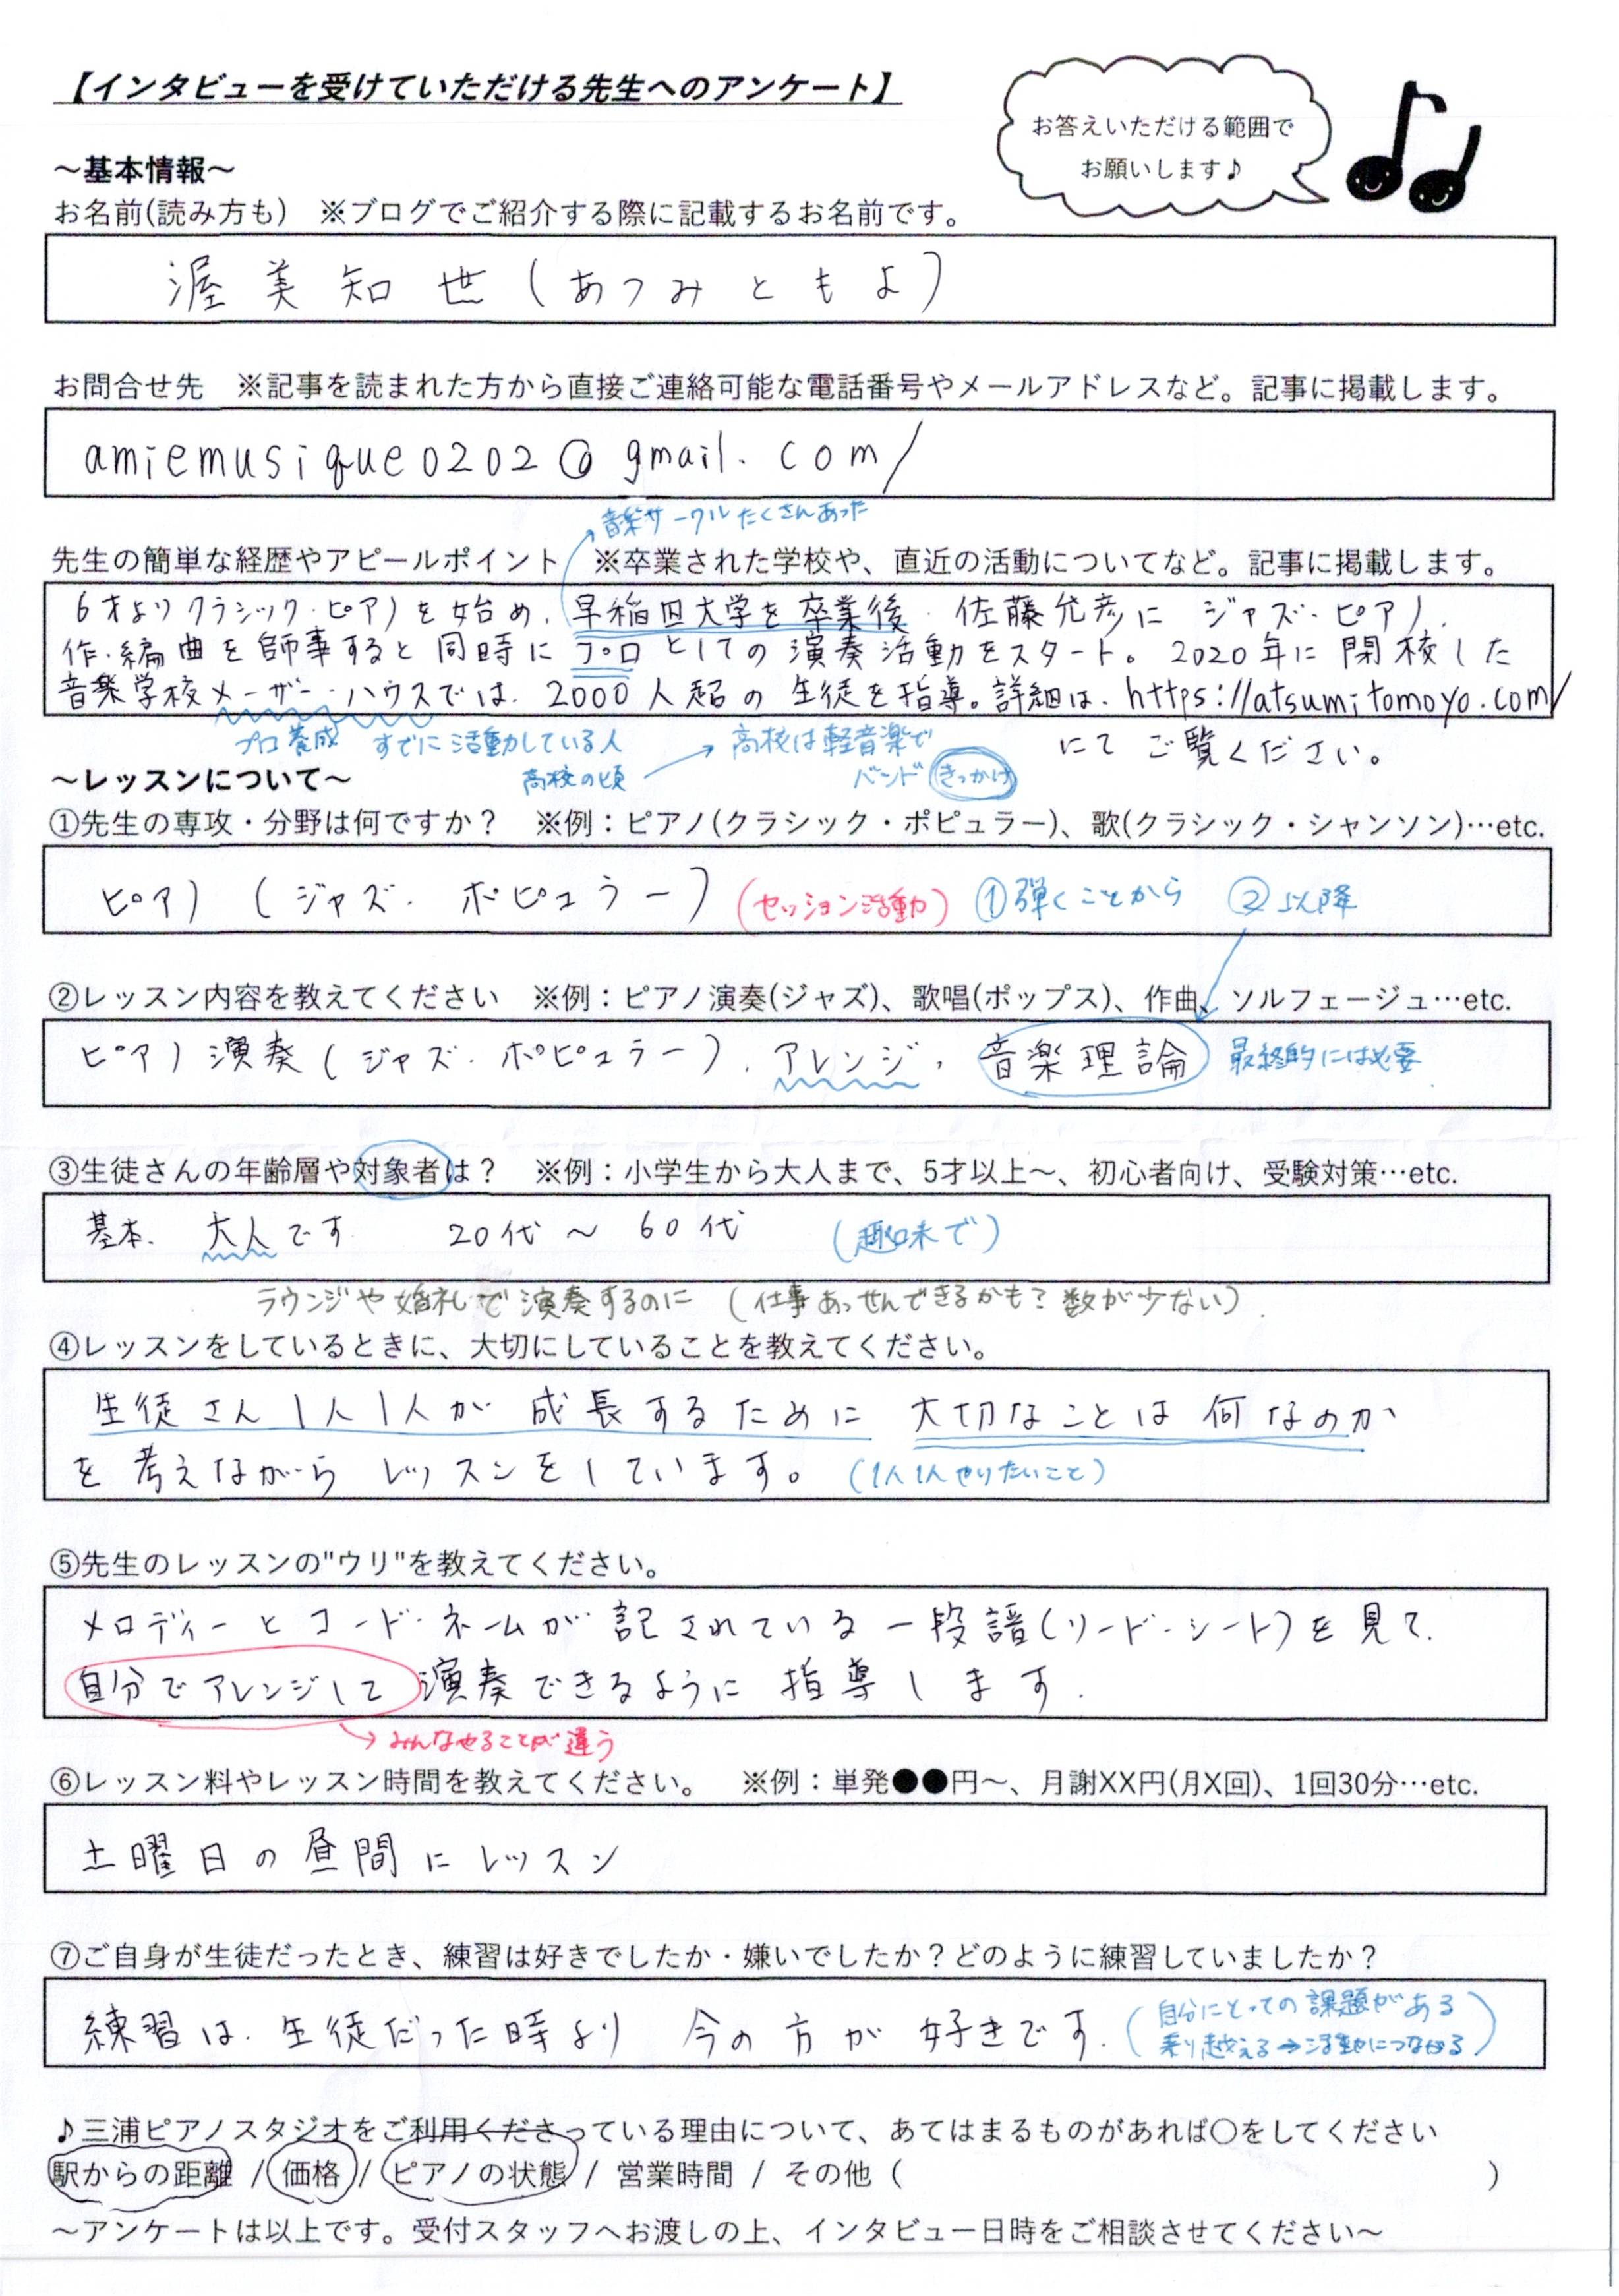 【インタビューを受けていただける先生へのアンケート】
お答えいただける範囲で
お願いします♪
～基本情報～
お名前(読み方も)　※ブログでご紹介する際に記載するお名前です。
渥美知世(あつみともよ)
お問合せ先　※記事を読まれた方から直接ご連絡可能な電話番号やメールアドレスなど。記事に掲載します。
amiemusique0202@gmail.com/
音楽サークルたくさんあった
先生の簡単な経歴やアピールポイント　※卒業された学校や、直近の活動についてなど。記事に掲載します。
6才よりクラシック・ピアノを始め、早稲田大学を卒業後、佐藤允彦にジャズ・ピアノ、
作・編曲を師事すると同時にプロとしての演奏活動をスタート。2020年に閉校した
音楽学校メーザー・ハウスでは、2000人超の生徒を指導。詳細は、https://atsumitomoyo.com/
にてご覧ください。
プロ養成　すでに活動している人
高校の頃
高校は軽音楽で
バンド きっかけ
～レッスンについて～
①先生の専攻・分野は何ですか？　※例：ピアノ(クラシック・ポピュラー)、歌(クラシック・シャンソン)…etc.
ピアノ (ジャズ・ポピュラー) (セッション活動) ①弾くことから ②以降
②レッスン内容を教えてください　※例：ピアノ演奏(ジャズ)、歌唱(ポップス)、作曲、ソルフェージュ…etc.
ピアノ演奏(ジャズ・ポピュラー)、アレンジ、音楽理論 最終的には必要
③生徒さんの年齢層や対象者は？　※例：小学生から大人まで、5才以上～、初心者向け、受験対策…etc.
基本、大人です　20代～60代　(趣味で)
ラウンジや婚礼で演奏するのに (仕事あっせんできるかも？数が少ない)
④レッスンをしているときに、大切にしていることを教えてください。
生徒さん1人1人が成長するために大切なことは何なのか
を考えながらレッスンをしています。(1人1人やりたいこと)
⑤先生のレッスンの"ウリ"を教えてください。
メロディーとコード・ネームが記されている一段譜(リード・シート)を見て、
自分でアレンジして演奏できるように指導します。
→みんなやることが違う
⑥レッスン料やレッスン時間を教えてください。　※例：単発●●円～、月謝XX円(月X回)、1回30分…etc.
土曜日の昼間にレッスン
⑦ご自身が生徒だったとき、練習は好きでしたか・嫌いでしたか？どのように練習していましたか？
練習は、生徒だった時より今の方が好きです。
(自分にとっての課題がある
乗り越える→活動につながる)
♪三浦ピアノスタジオをご利用くださっている理由について、あてはまるものがあれば○をしてください
駅からの距離 / 価格 / ピアノの状態 / 営業時間 / その他（　　　）
～アンケートは以上です。受付スタッフへお渡しの上、インタビュー日時をご相談させてください～